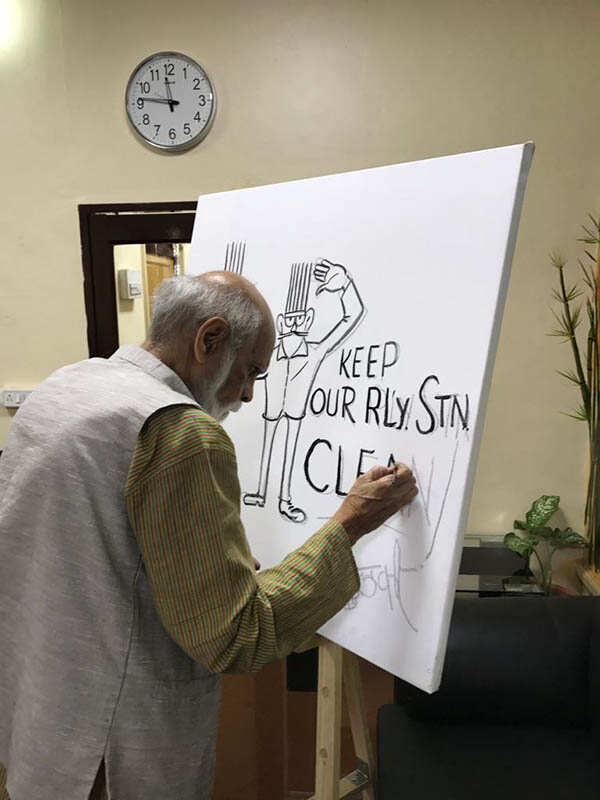 11 12 1
10 2
9 3
8 4
7 6 5
KEEP
OUR RLY. STN.
CLEAN